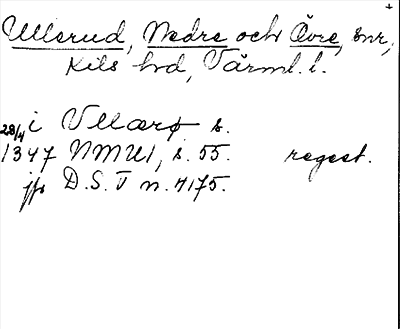 Ullerud, Nedre och Övre, snr,
Kils hd, Värml. l.
28/4 i Vllærø s.
1347 NMU1, s. 55. regest.
jfr D.S. V n. 4175.